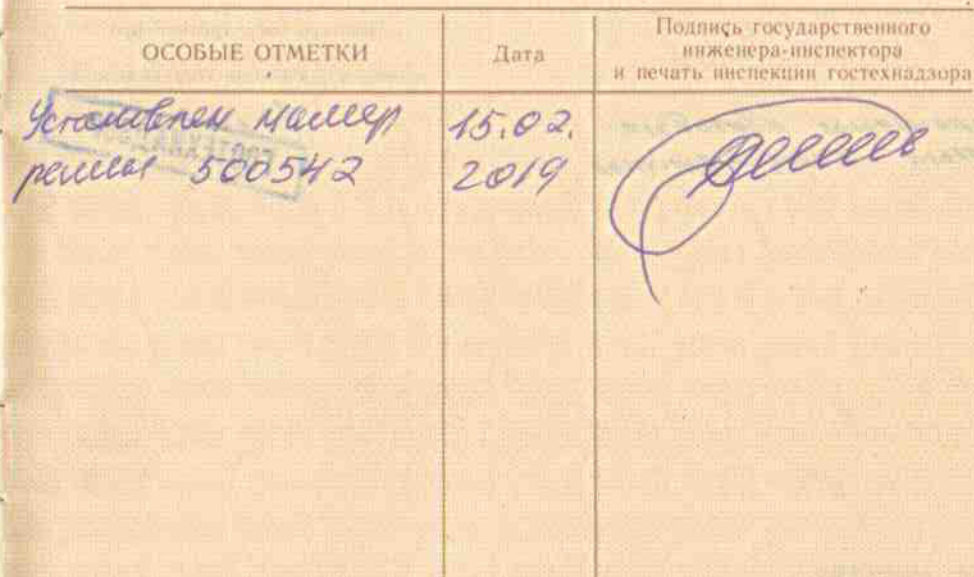 ОСОБЫЕ ОТМЕТКИ
Дата
Подпись государственного
инженера-инспектора
и печать инспекции гостехнадзора
Установлен номер
500542
15.02.
2019